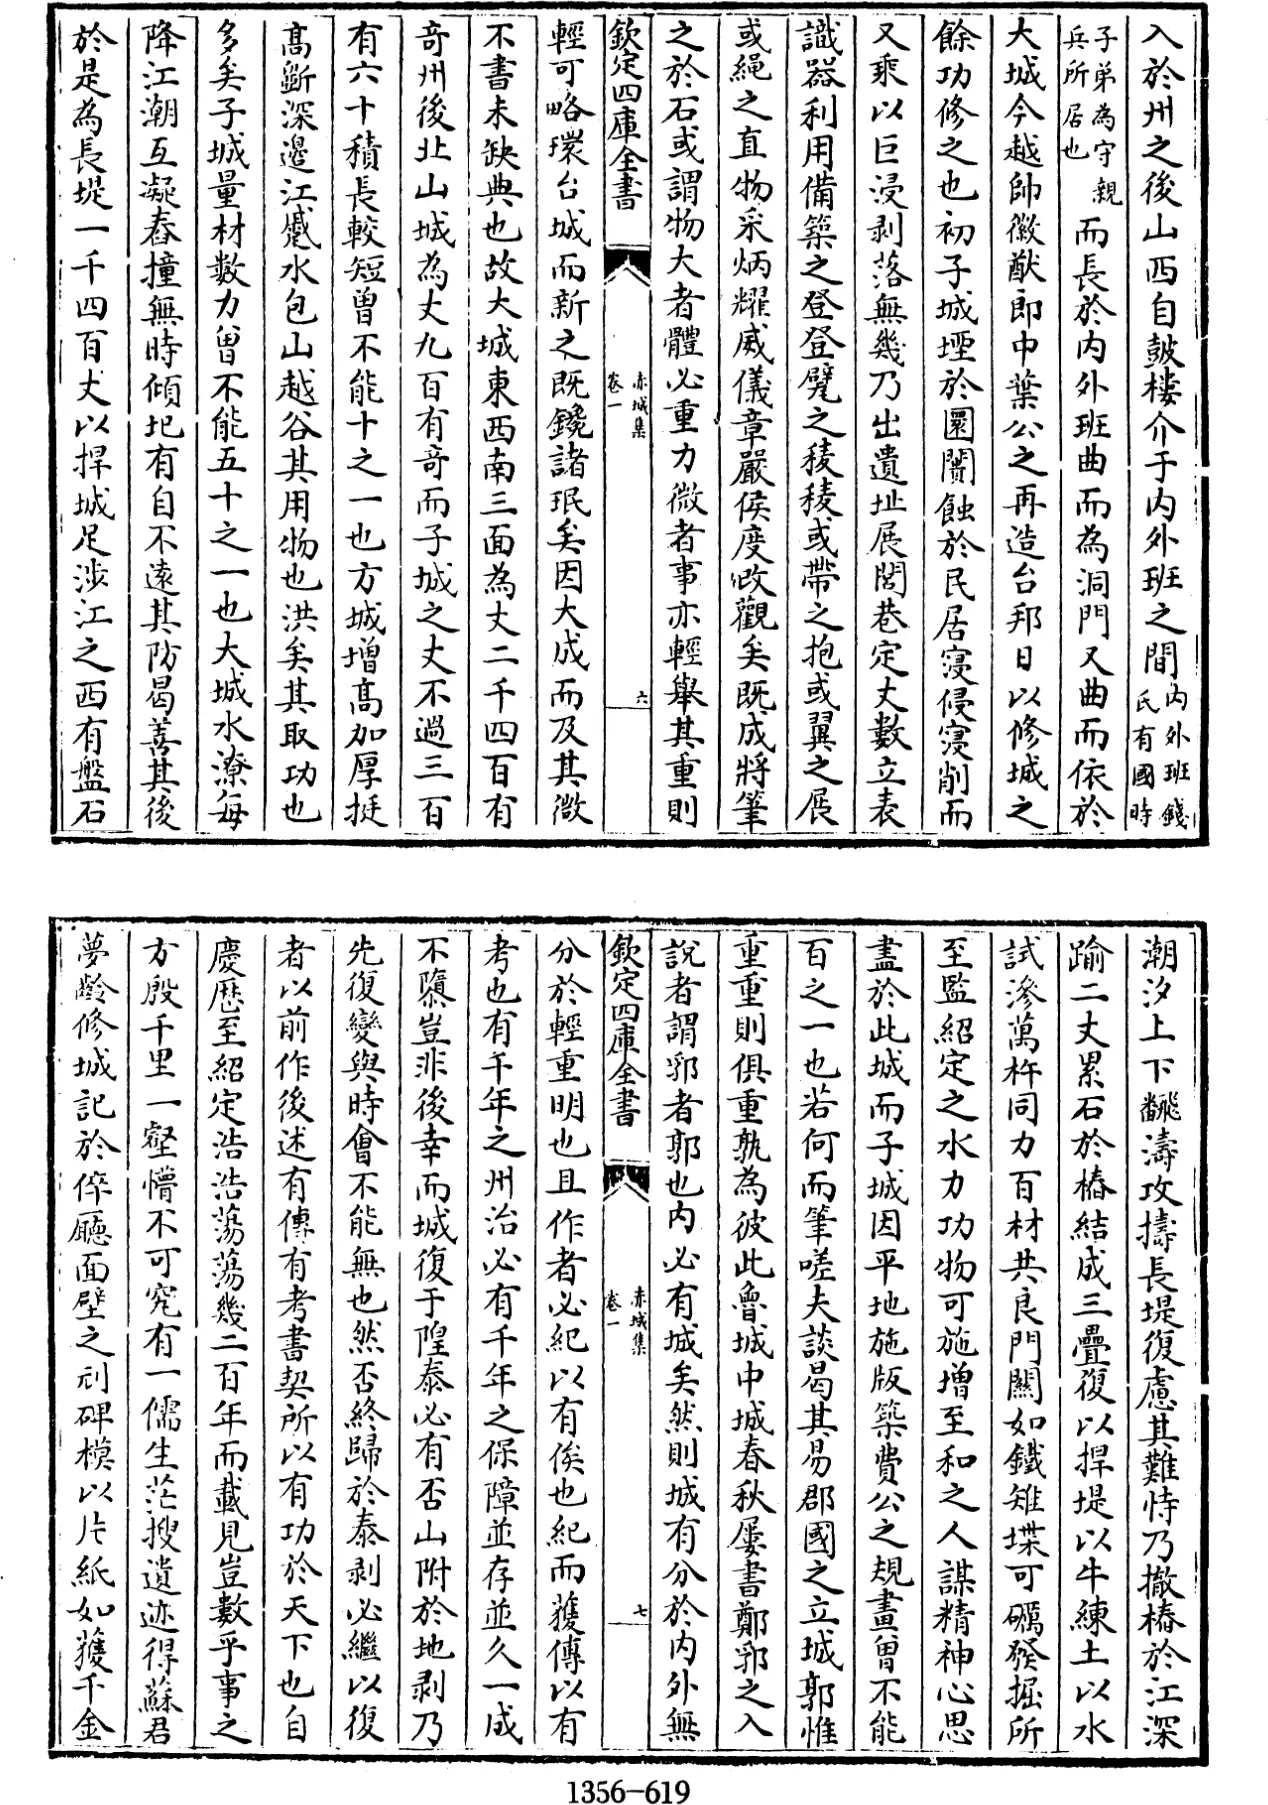 入於州之後山西自鼓樓介于内外班之間内外班錢氏有國時
子弟為守親兵所居也而長於内外班曲而為洞門又曲而依於
大城今越帥徽猷郎中葉公之再造台邦日以修城之
餘功修之也初子城堙於圜闠蝕於民居寖侵寖削而
又乘以巨浸剥落無幾乃出遺址展閭巷定丈數立表
識器利用備築之登登甓之稜稜或帶之抱或翼之展
或繩之直物采炳耀威儀章嚴侯度改觀矣既成將筆
之於石或謂物大者體必重力微者事亦輕舉其重則
欽定四庫全書
赤城集
卷一
六
輕可略環台城而新之既鑱諸珉矣因大成而及其微
不書未缺典也故大城東西南三面為丈二千四百有
奇州後北山城為丈九百有奇而子城之丈不過三百
有六十積長較短曾不能十之一也方城增髙加厚挺
髙斷深邉江蹙水包山越谷其用物也洪矣其取功也
多矣子城量材數力曾不能五十之一也大城水潦毎
降江潮互凝舂撞無時傾圮有自不逺其防曷善其後
於是為長堤一千四百丈以捍城足涉江之西有盤石
潮汐上下飜濤攻擣長堤復慮其難恃乃撤樁於江深
踰二丈累石於樁結成三疊復以捍堤以牛練土以水
試滲萬杵同力百材共良門關如鐵雉堞可礪發掘所
至監紹定之水力功物可施增至和之人謀精神心思
盡於此城而子城因平地施版築費公之規畫曾不能
百之一也若何而筆嗟夫談曷其易郡國之立城郭惟
重重則俱重孰為彼此魯城中城春秋屢書鄭郛之入
說者謂郛者郭也内必有城矣然則城有分於内外無
欽定四庫全書
赤城集
卷一
七
分於輕重明也且作者必紀以有俟也紀而獲傳以有
考也有千年之州治必有千年之保障並存並久一成
不隳豈非後幸而城復于隍泰必有否山附於地剥乃
先復變與時會不能無也然否終歸於泰剥必繼以復
者以前作後述有傳有考書契所以有功於天下也自
慶厯至紹定浩浩蕩蕩幾二百年而載見豈數乎事之
方殷千里一壑懵不可究有一儒生茫搜遺迹得蘇君
夢齡修城記於倅㕔面壁之刓碑模以片紙如獲千金
1356-619